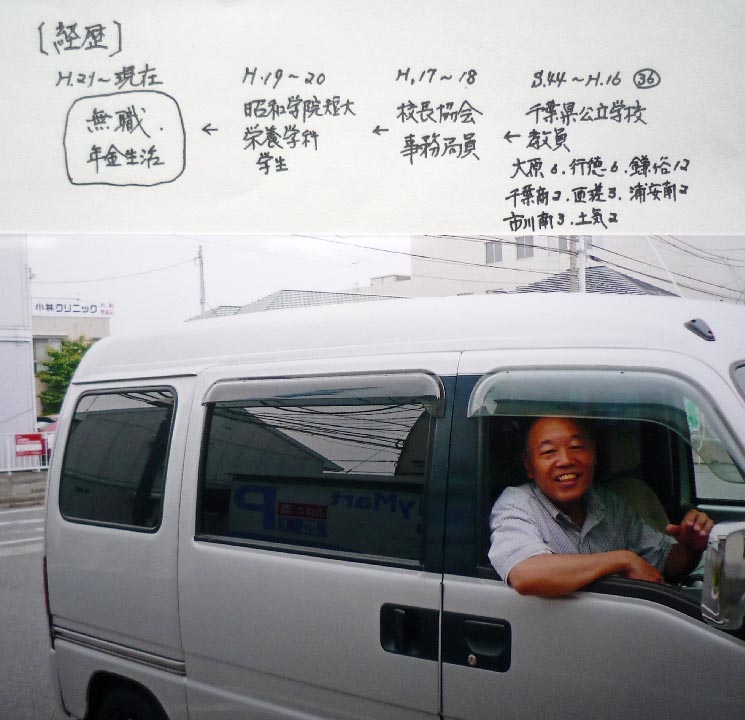 ［経歴］
H.21～現在
無職.
年金生活
←
H.19～20
昭和学院短大
栄養学科
学生
←
H.17～18
校長協会
事務局員
←
S.44～H.16 ㊱
千葉県公立学校
教員
大原6.行徳6.鎌谷12
千葉南2.匝瑳3.浦安南2
市川南3.土気2
小林クリニック
lyMart
P